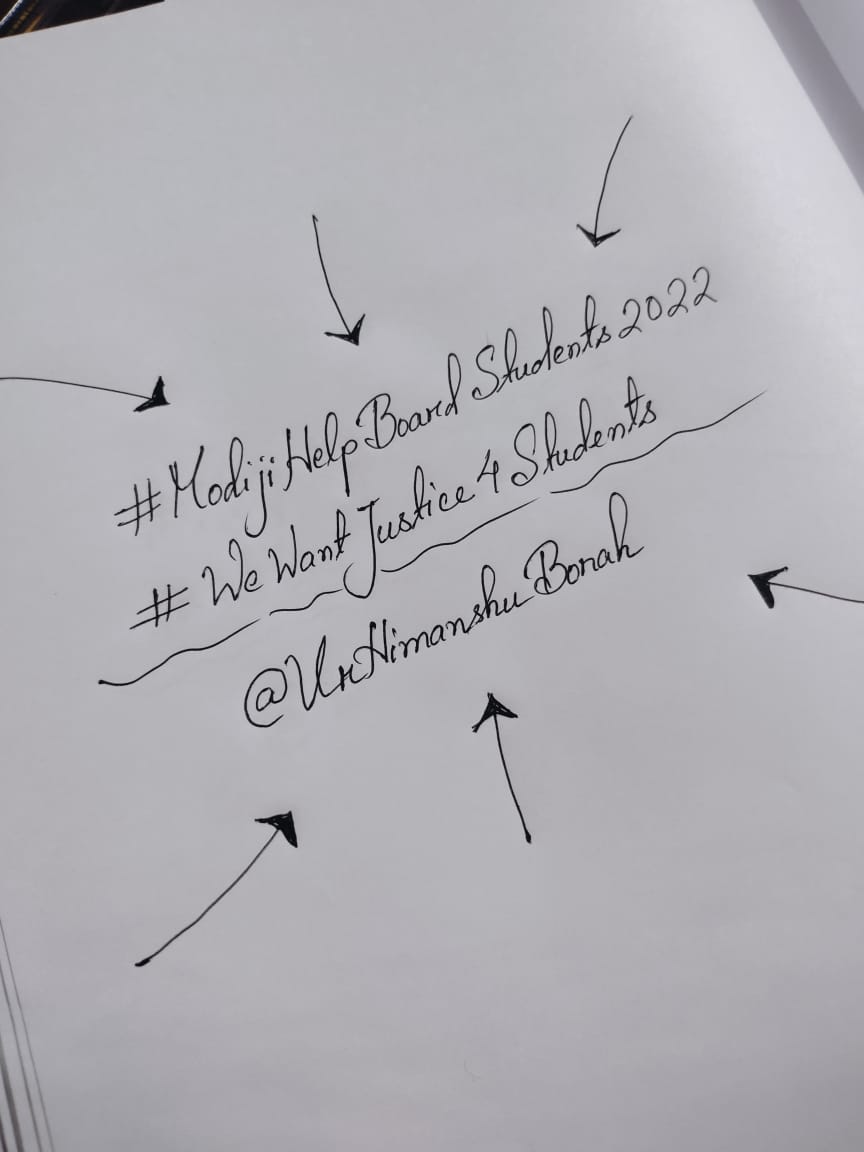 #ModijiHelpBoardStudents2022
#WeWantJustice4Students
@UrHimanshuBorah